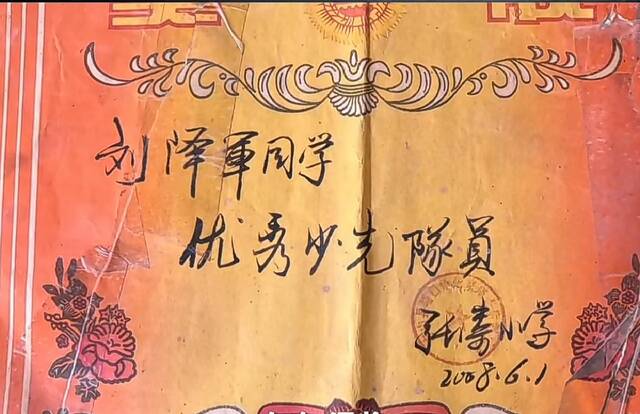 刘泽軍同学
优秀少先隊員
张寿小学
2008.6.1